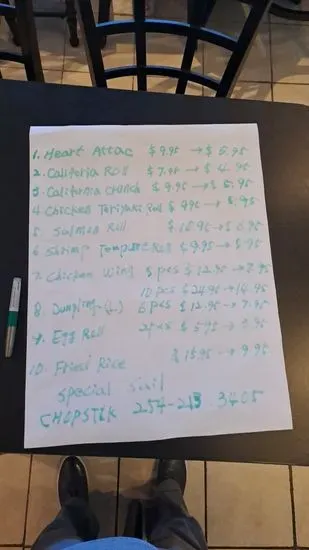 1. Heart Attac $9.95 → $5.95
2. Califoria Roll $7.95 → $4.95
3. California crunch $9.95 → $5.95
4 Chicken Teriyaki Roll $9.95 → $5.95
5. Salmon Roll $10.95 → $6.95
6 Shrimp Tempura Roll $9.95 → $5.95
7 Chicken Wing 5 pcs $12.95 → 7.95
10 pcs $24.95 → 14.95
8. Dumpling-(L) 6 pcs $12.95 → 7.95
9. Egg Roll 2 pcs $5.95 → 3.95
10. Fried Rice $15.95 → 9.95
special sail
CHOPSTIK 254-213 3405